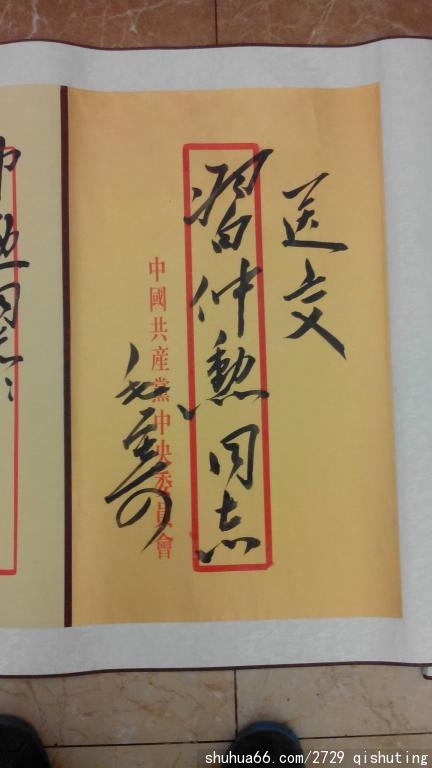 送交
習仲勲同志
中國共產黨中央委員會
仲勲同志：
shuhua66.com/2729 qishuting